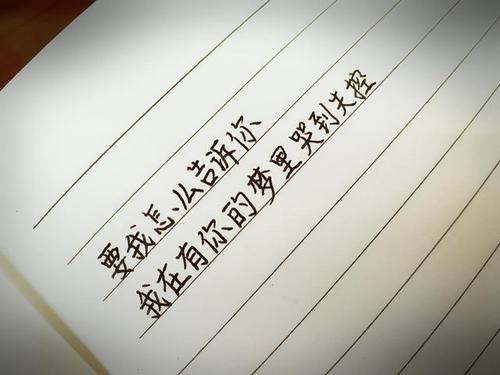 要我怎么告诉你
我在有你的梦里哭到失控